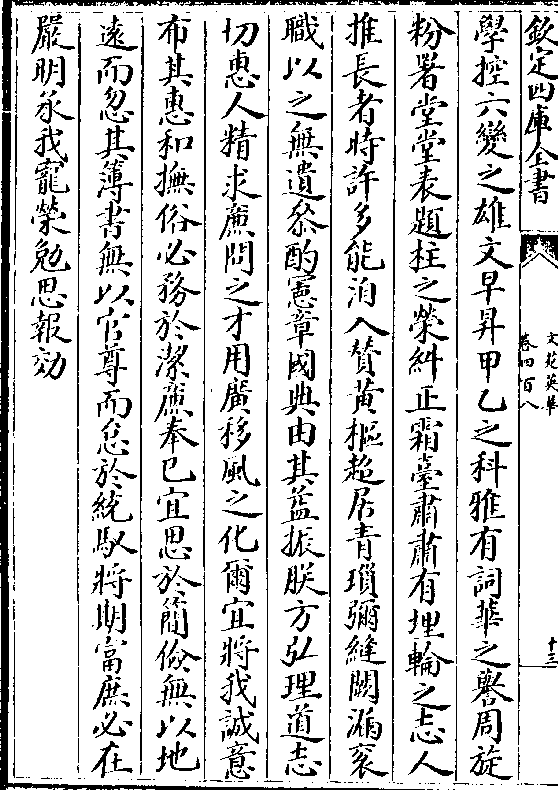 欽定四庫全書
文苑英華
卷四百八
十三
學控六變之雄文早昇甲乙之科雅有詞華之譽周旋
粉署堂堂表題柱之榮糾正霜臺肅肅有埋輪之志人
推長者時許多能洎入贊黄樞超居青瑣彌縫闕漏袞
職以之無遺叅酌憲章國典由其益振朕方弘理道志
切惠人精求廉問之才用廣移風之化爾宜將我誠意
布其惠和撫俗必務於潔廉奉已宜思於簡儉無以地
遠而忽其簿書無以官尊而怠於統馭將期富庶必在
嚴明承我寵榮勉思報効